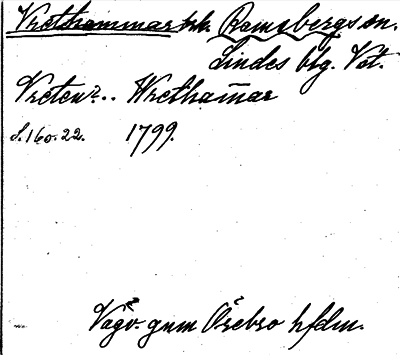 Vrethammartrk. Ramsbergs sn.
Lindes btg. Vst.
Vreten?.. Wretham̅ar
S. 160-22. 1799.
Vägv. gnm Örebro hfdm.